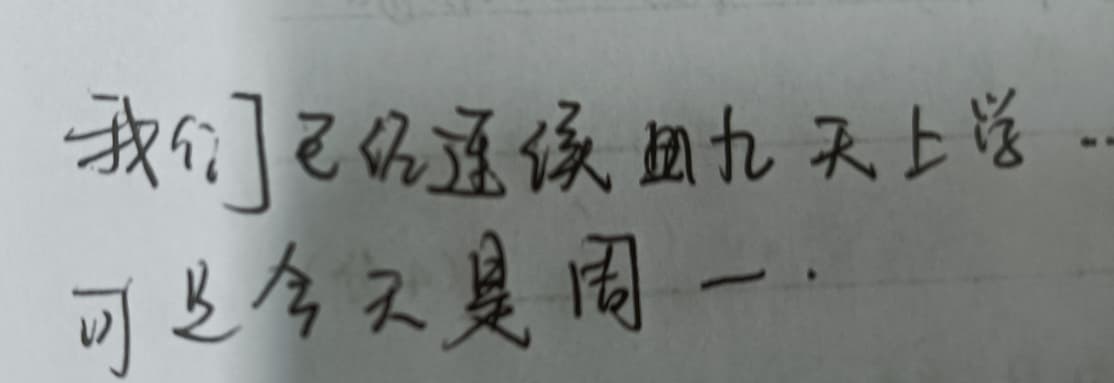 我们已经连续四九天上学..
可是今天是周一.